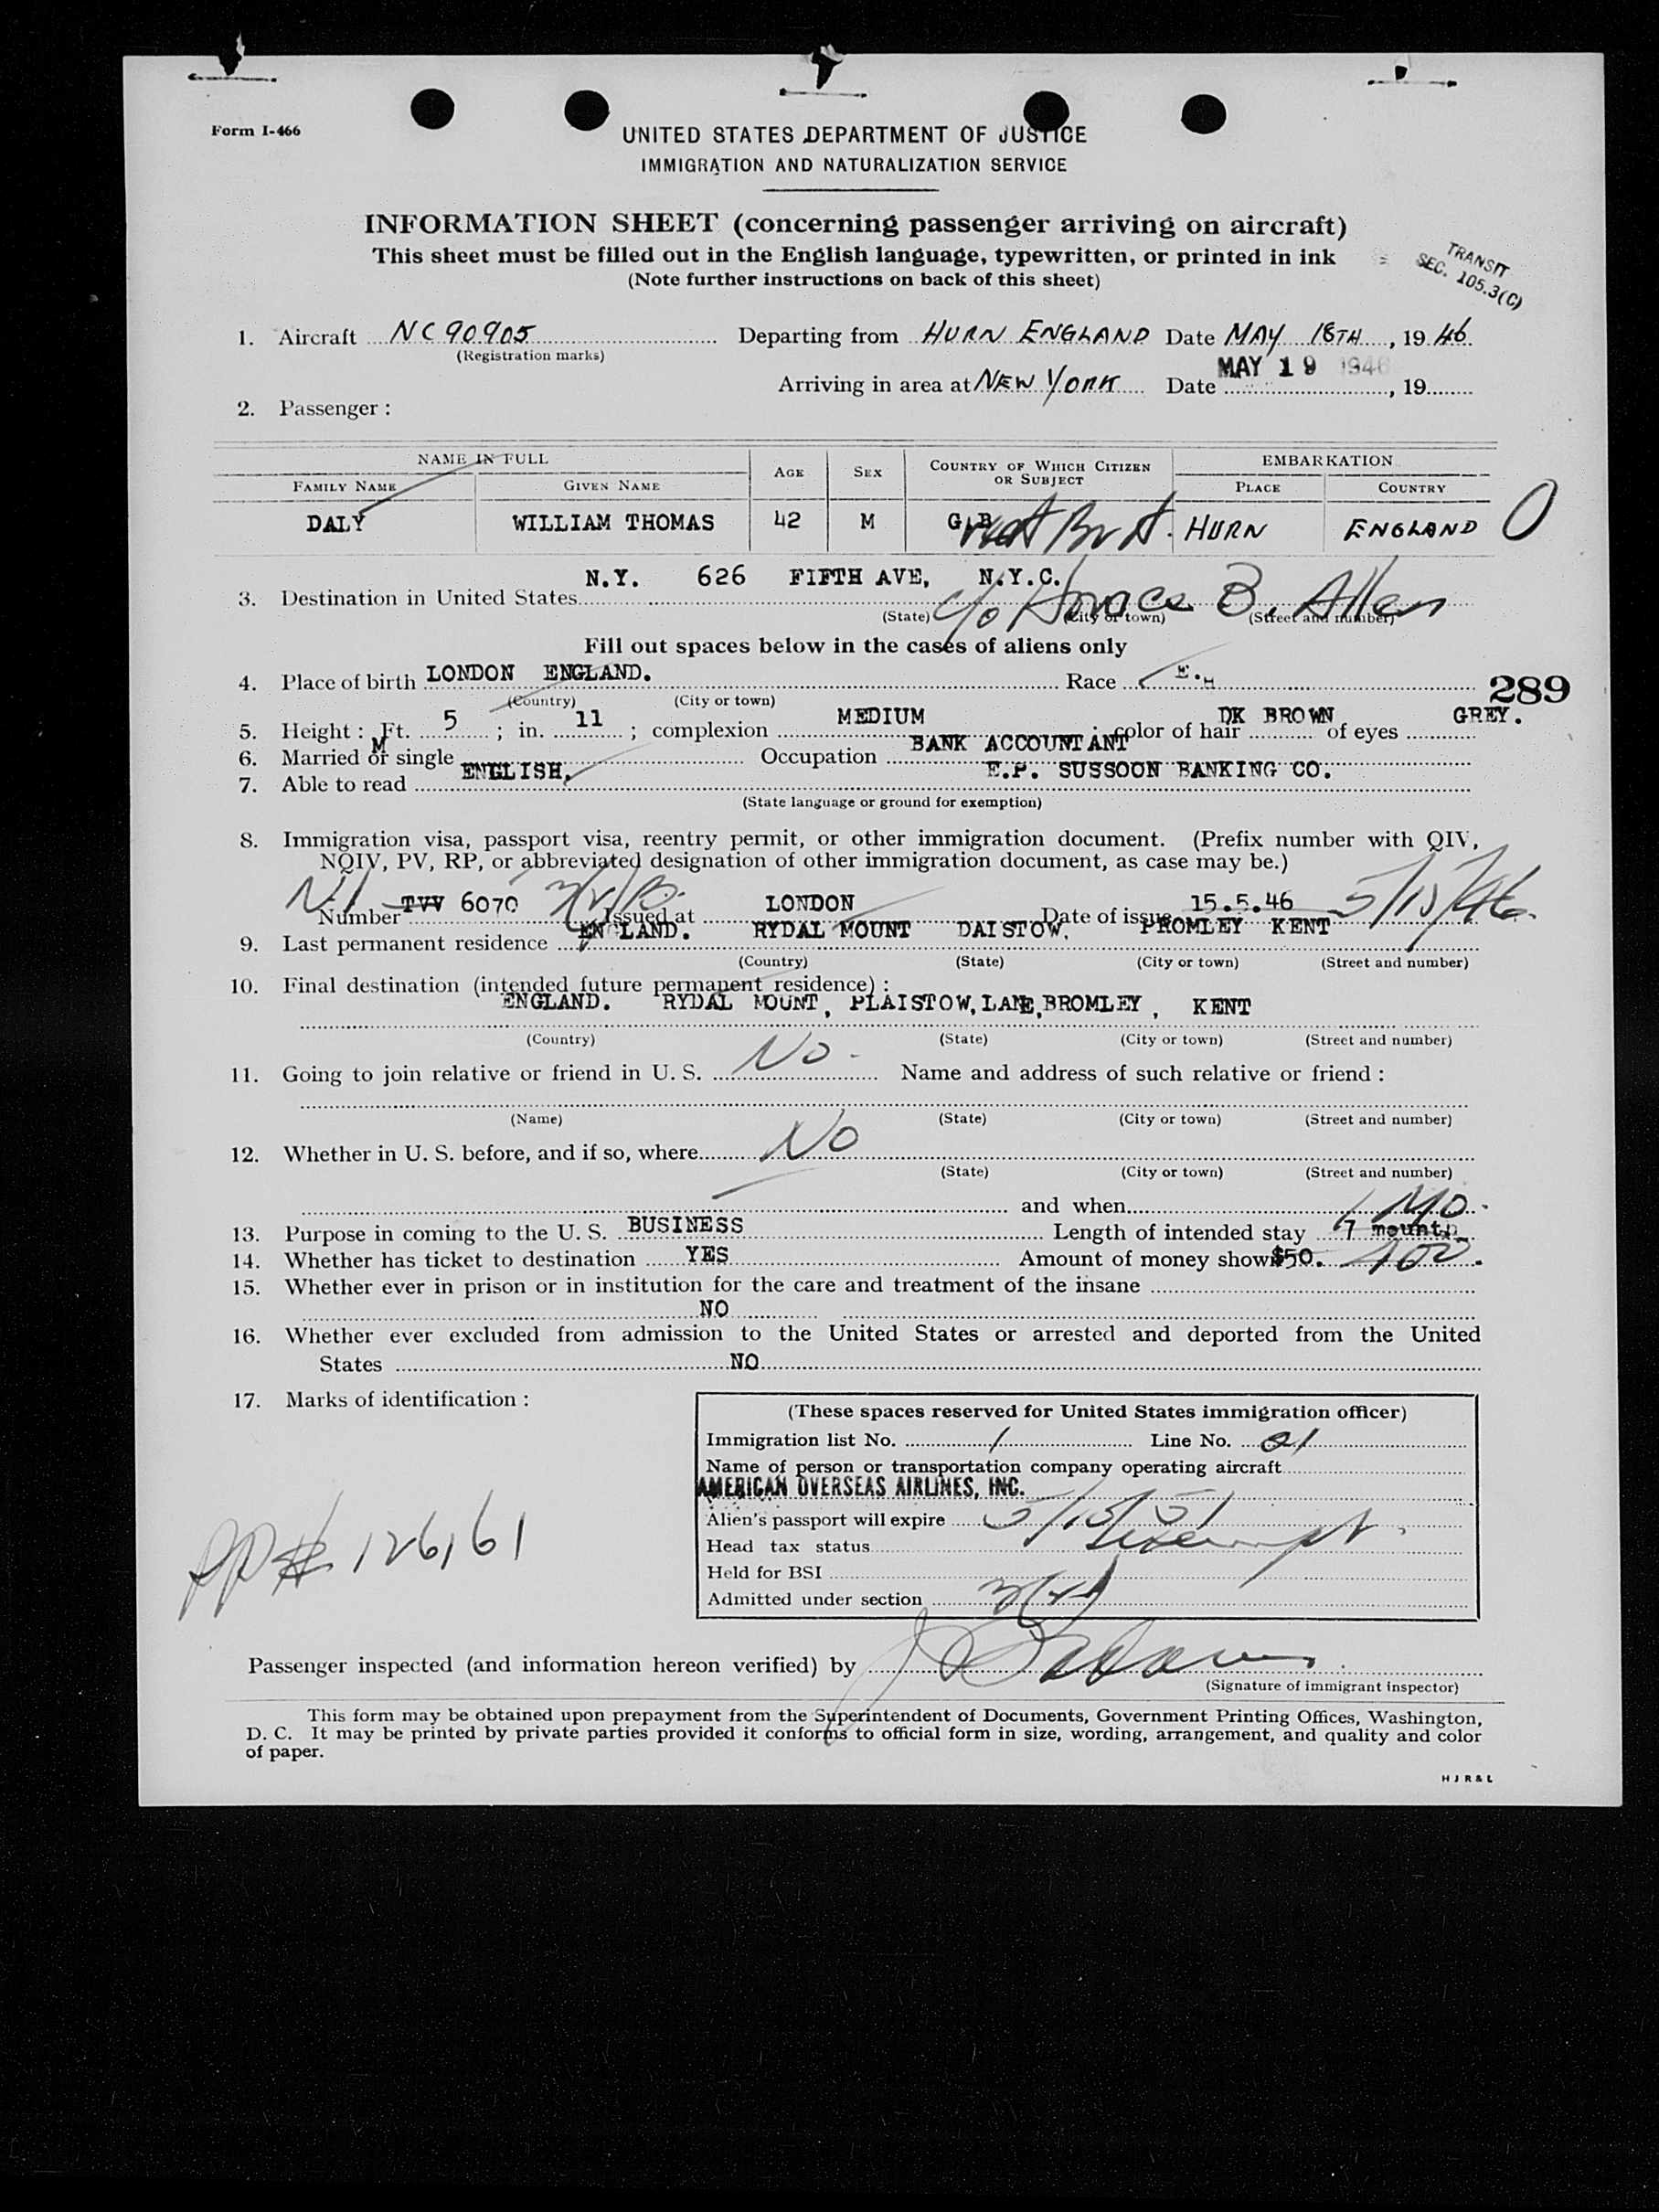 Form I-466
UNITED STATES DEPARTMENT OF JUSTICE
IMMIGRATION AND NATURALIZATION SERVICE
INFORMATION SHEET (concerning passenger arriving on aircraft)
This sheet must be filled out in the English language, typewritten, or printed in ink
(Note further instructions on back of this sheet)
TRANSIT
SEC. 105.3(C)
1. Aircraft NC90905 Departing from HURN ENGLAND Date MAY 18TH, 1946.
(Registration marks)
MAY 19 1946
Arriving in area at NEW YORK Date , 19
2. Passenger :
NAME IN FULL AGE SEX COUNTRY OF WHICH CITIZEN OR SUBJECT EMBARKATION
FAMILY NAME GIVEN NAME PLACE COUNTRY
DALY WILLIAM THOMAS 42 M G.B. HURN ENGLAND O
N.Y. 626 FIFTH AVE, N.Y.C.
3. Destination in United States c/o Horace B. Allen
(State) (City or town) (Street and number)
Fill out spaces below in the cases of aliens only
4. Place of birth LONDON ENGLAND. Race E.
(Country) (City or town)
289
5. Height : Ft. 5 ; in. 11 ; complexion MEDIUM ; color of hair DK BROWN of eyes GREY.
6. Married or single M Occupation BANK ACCOUNTANT
7. Able to read ENGLISH. E.P. SUSSOON BANKING CO.
(State language or ground for exemption)
8. Immigration visa, passport visa, reentry permit, or other immigration document. (Prefix number with QIV,
NQIV, PV, RP, or abbreviated designation of other immigration document, as case may be.)
Number TVV 6070 Issued at LONDON Date of issue 15.5.46 5/15/46.
9. Last permanent residence ENGLAND. RYDAL MOUNT DAISTOW. PROMLEY KENT
(Country) (State) (City or town) (Street and number)
10. Final destination (intended future permanent residence) :
ENGLAND. RYDAL MOUNT, PLAISTOW, LANE, BROMLEY, KENT
(Country) (State) (City or town) (Street and number)
11. Going to join relative or friend in U. S. No. Name and address of such relative or friend :
(Name) (State) (City or town) (Street and number)
12. Whether in U. S. before, and if so, where No
(State) (City or town) (Street and number)
and when
13. Purpose in coming to the U. S. BUSINESS Length of intended stay 1 Mo.
14. Whether has ticket to destination YES Amount of money shown $50. 100.
15. Whether ever in prison or in institution for the care and treatment of the insane
NO
16. Whether ever excluded from admission to the United States or arrested and deported from the United
States NO
17. Marks of identification :
(These spaces reserved for United States immigration officer)
Immigration list No. 1 Line No. 21
Name of person or transportation company operating aircraft
AMERICAN OVERSEAS AIRLINES, INC.
Alien's passport will expire 5/15/51
Head tax status Exempt.
Held for BSI
Admitted under section 3(2)
PP# 126161
Passenger inspected (and information hereon verified) by
(Signature of immigrant inspector)
This form may be obtained upon prepayment from the Superintendent of Documents, Government Printing Offices, Washington,
D. C. It may be printed by private parties provided it conforms to official form in size, wording, arrangement, and quality and color
of paper.
HJR&L